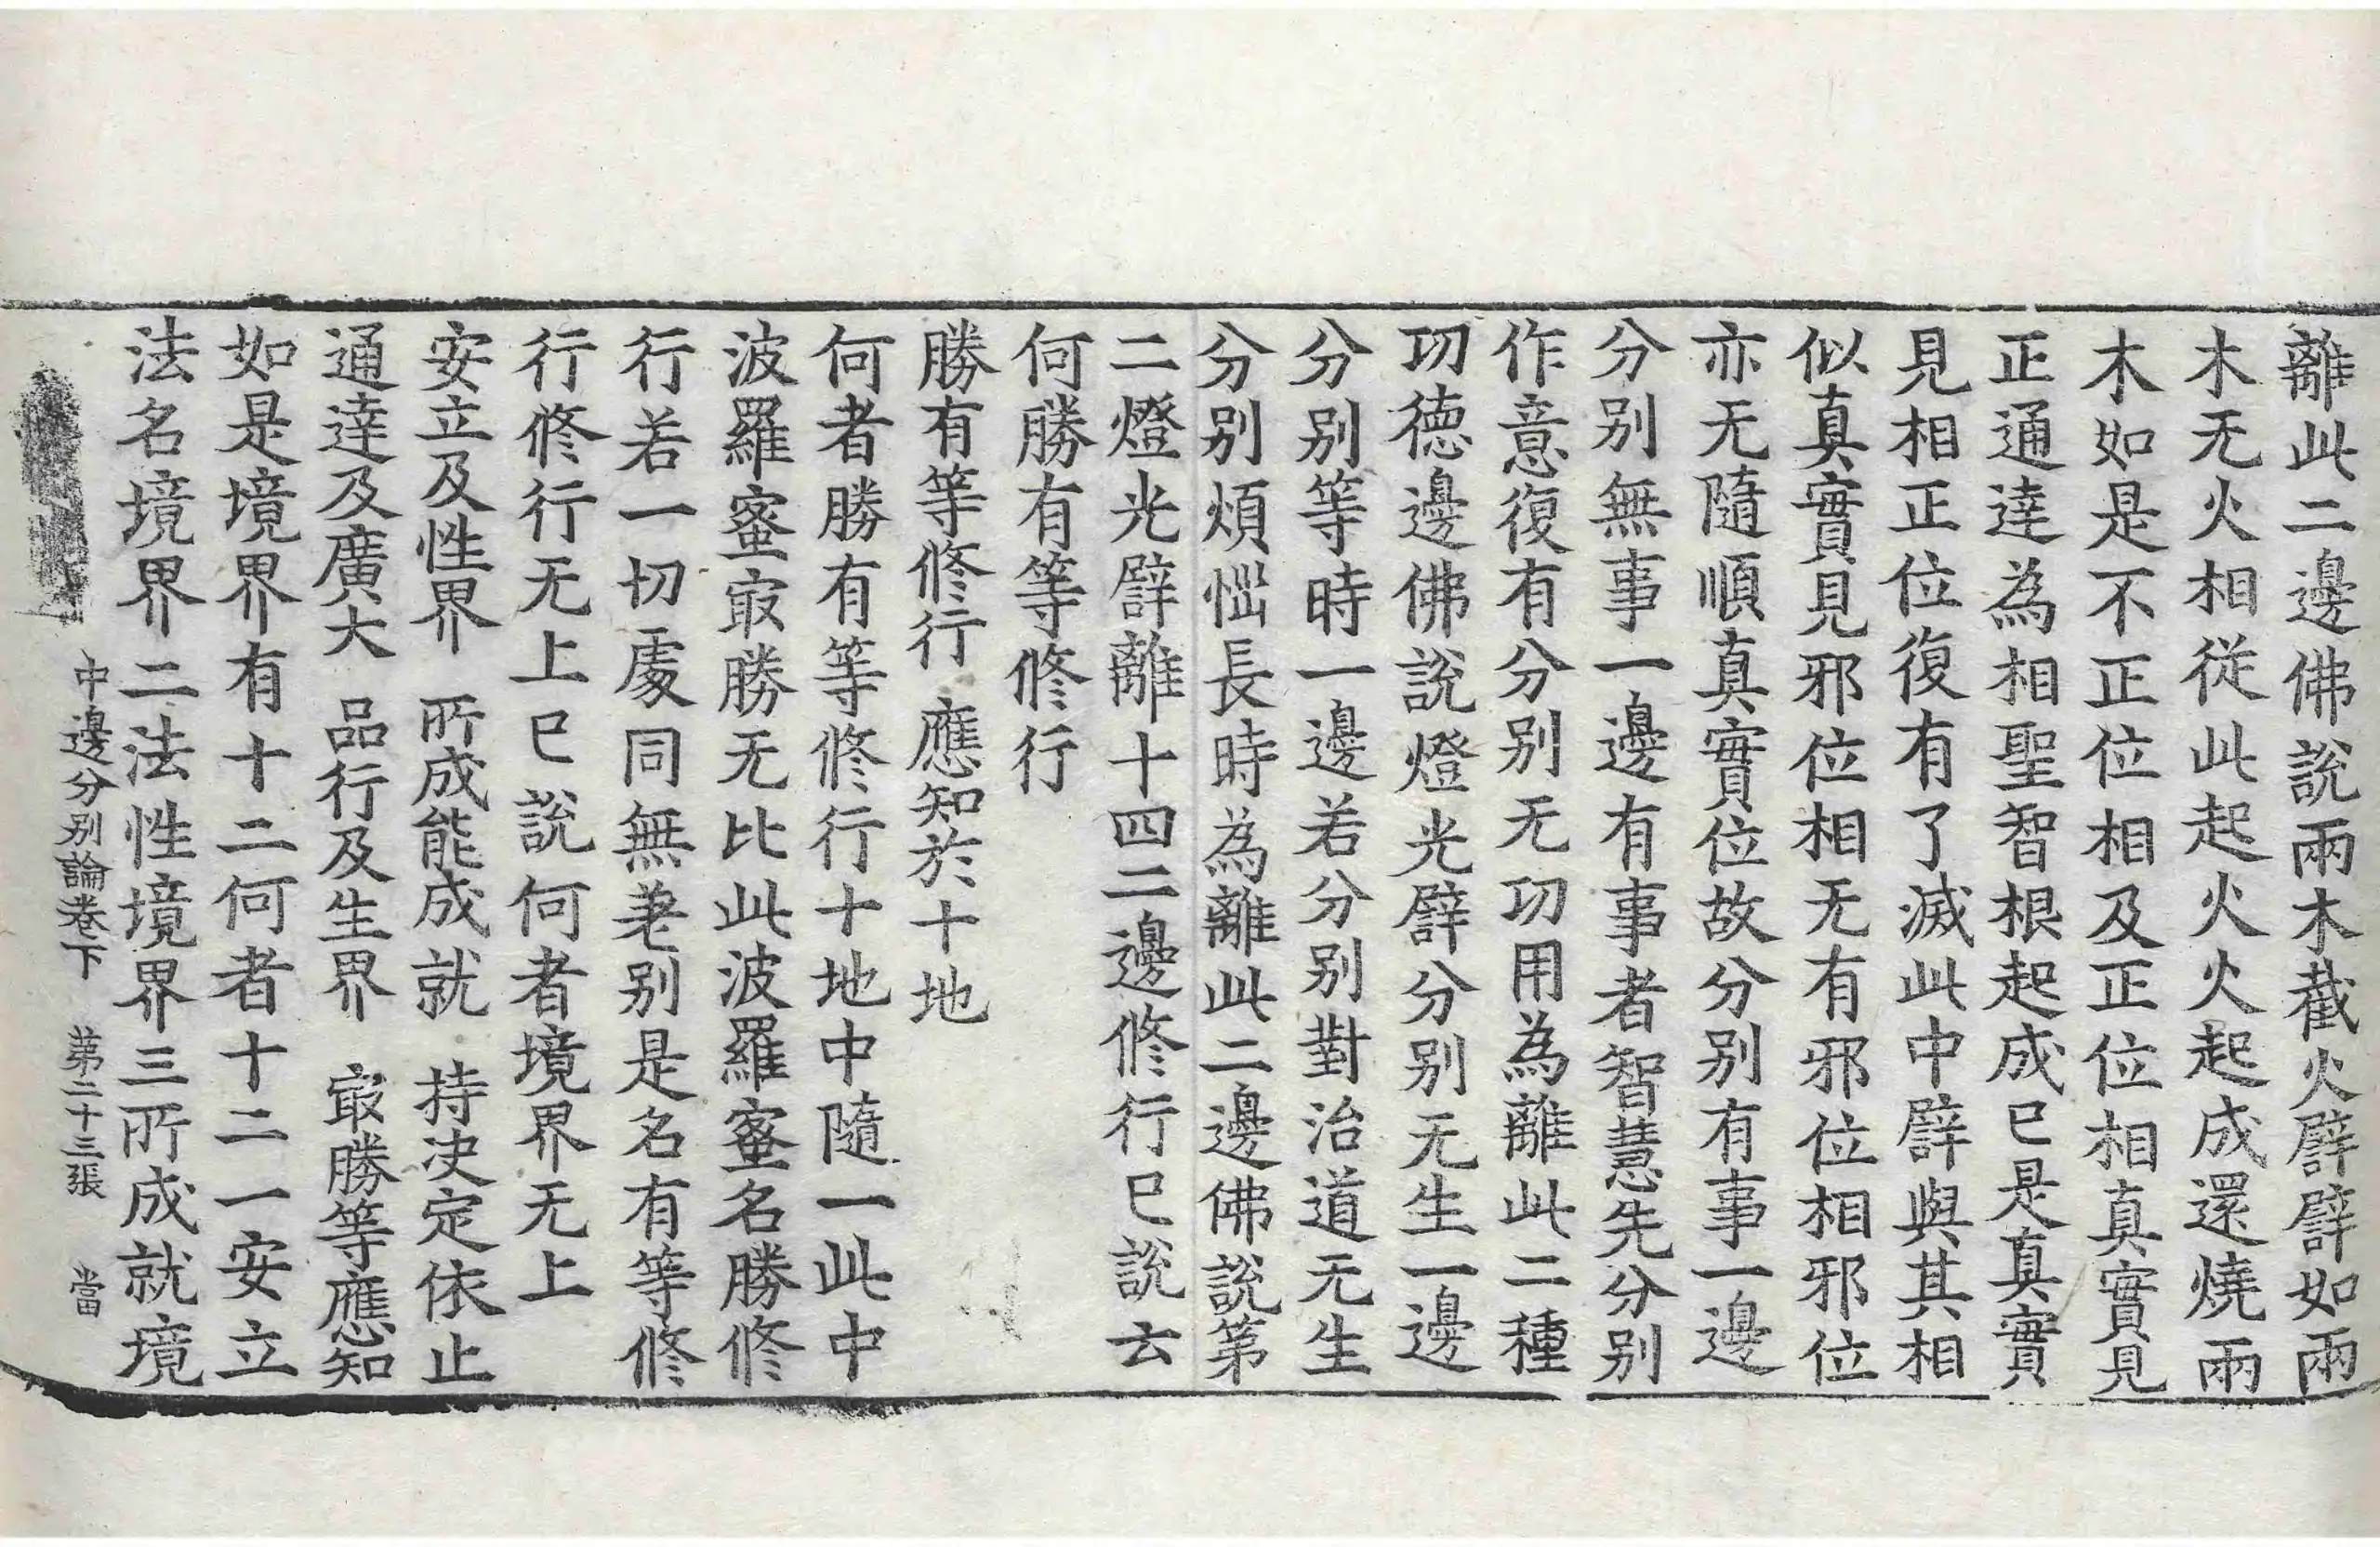 離此二邊佛說兩木截火譬譬如兩
木无火相従此起火火起成還燒兩
木如是不正位相及正位相真實見
正通達為相聖智根起成已是真實
見相正位復有了滅此中譬與其相
似真實見邪位相无有邪位相邪位
亦无隨順真實位故分别有事一邊
分别無事一邊有事者智慧先分别
作意復有分别无功用為離此二種
功德邊佛說燈光譬分别无生一邊
分别等時一邊若分别對治道无生
分别煩惱長時為離此二邊佛說第
二燈光譬離十四二邊修行已說云
何勝有等修行
勝有等修行 應知於十地
何者勝有等修行十地中隨一此中
波羅蜜㝡勝无比此波羅蜜名勝修
行若一切處同無差别是名有等修
行修行无上已說何者境界无上
安立及性界 所成能成就 持决定依止
通達及廣大 品行及生界 㝡勝等應知
如是境界有十二何者十二一安立
法名境界二法性境界三所成就境
中邊分別論卷下 苐二十三張 當